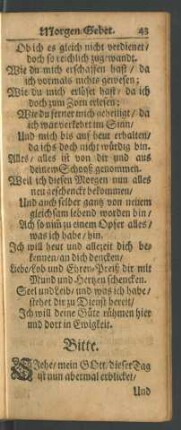 Morgen Gebet. 43
Ob ich es gleich nicht verdienet/
doch so reichlich zugewandt.
Wie du mich erschaffen hast/ da
ich vormals nichts gewesen;
Wie du mich erlöset hast/ da ich
doch zum Zorn erlesen;
Wie du ferner mich geheiligt/ da
ich war verkehrt im Sinn/
Und mich bis auf heut erhalten/
da ichs doch nicht würdig bin.
Alles/ alles ist von dir und aus
deinem Schooß genommen.
Weil ich diesen Morgen nun alles
neu geschenckt bekommen/
Und auch selber gantz von neuem
gleichsam lebend worden bin/
Ach so nim̃ zu einem Opfer alles/
was ich habe/ hin.
Ich will heut und allezeit dich be-
kennen/ an dich dencken/
Liebe/ Lob und Ehren-Preiß dir mit
Mund und Hertzen schencken.
Seel und Leib/ und was ich habe/
stehet dir zu Dienst bereit/
Ich will deine Güte rühmen hier
und dort in Ewigkeit.
Bitte.
Siehe/ mein GOtt/ dieser Tag
ist nun abermal erblicket/
Und